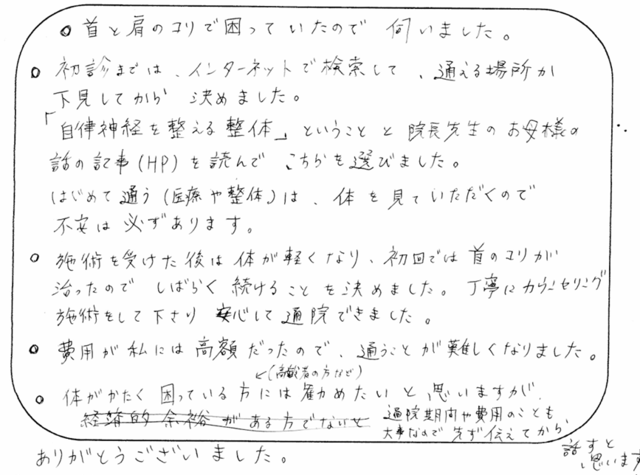 ○ 首と肩のコリで困っていたので 伺いました。
○ 初診までは、インターネットで検索して、通える場所か
下見してから 決めました。
「自律神経を整える整体」ということと 院長先生のお母様の
話の記事(HP)を読んで こちらを選びました。
はじめて通う(医療や整体)は、体を見ていただくので
不安は必ずあります。
○ 施術を受けた後は体が軽くなり、初回では首のコリが
治ったので しばらく続けることを決めました。丁寧にカウンセリング
施術をして下さり 安心して通院できました。
○ 費用が私には高額だったので、通うことが難しくなりました。
↙(高齢者の方など)
○ 体がかたく困っている方には勧めたいと思いますが、
経済的余裕がある方でないと 通院期間や費用のことも、
大事なので先ず伝えてから、
話すと
思います
ありがとうございました。